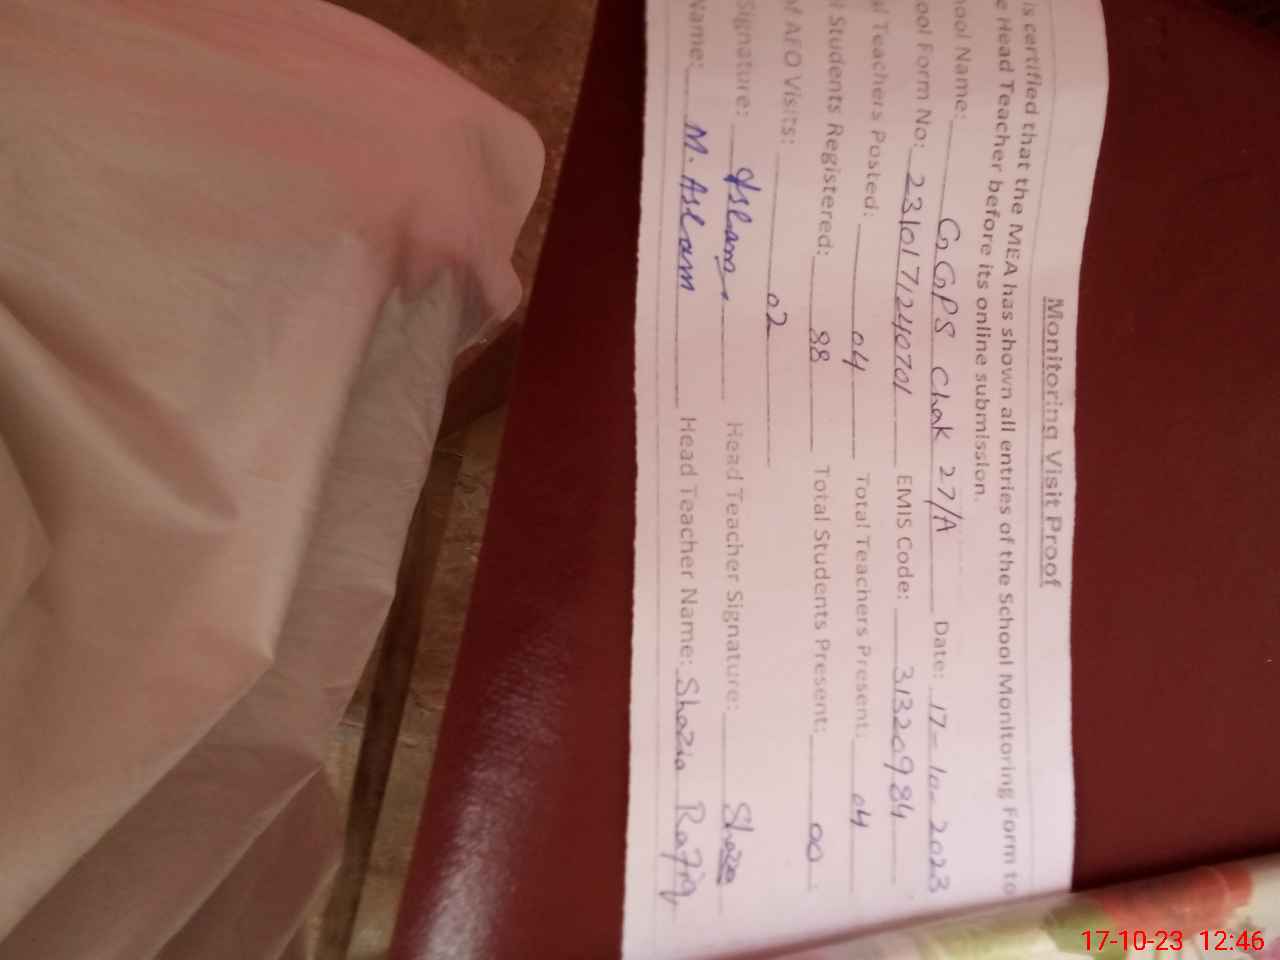 Monitoring Visit Proof
is certified that the MEA has shown all entries of the School Monitoring Form to
e Head Teacher before its online submission.
hool Name: GGPS Chak 27/A Date: 17-10-2023
ool Form No: 231017124070 1 EMIS Code: 31320984
al Teachers Posted: 04 Total Teachers Present: 04
l Students Registered: 88 Total Students Present: 00
of AEO Visits: 02
Signature: Aslam Head Teacher Signature: Shazia
Name: M. Aslam Head Teacher Name: Shazia Rafiq
17-10-23 12:46